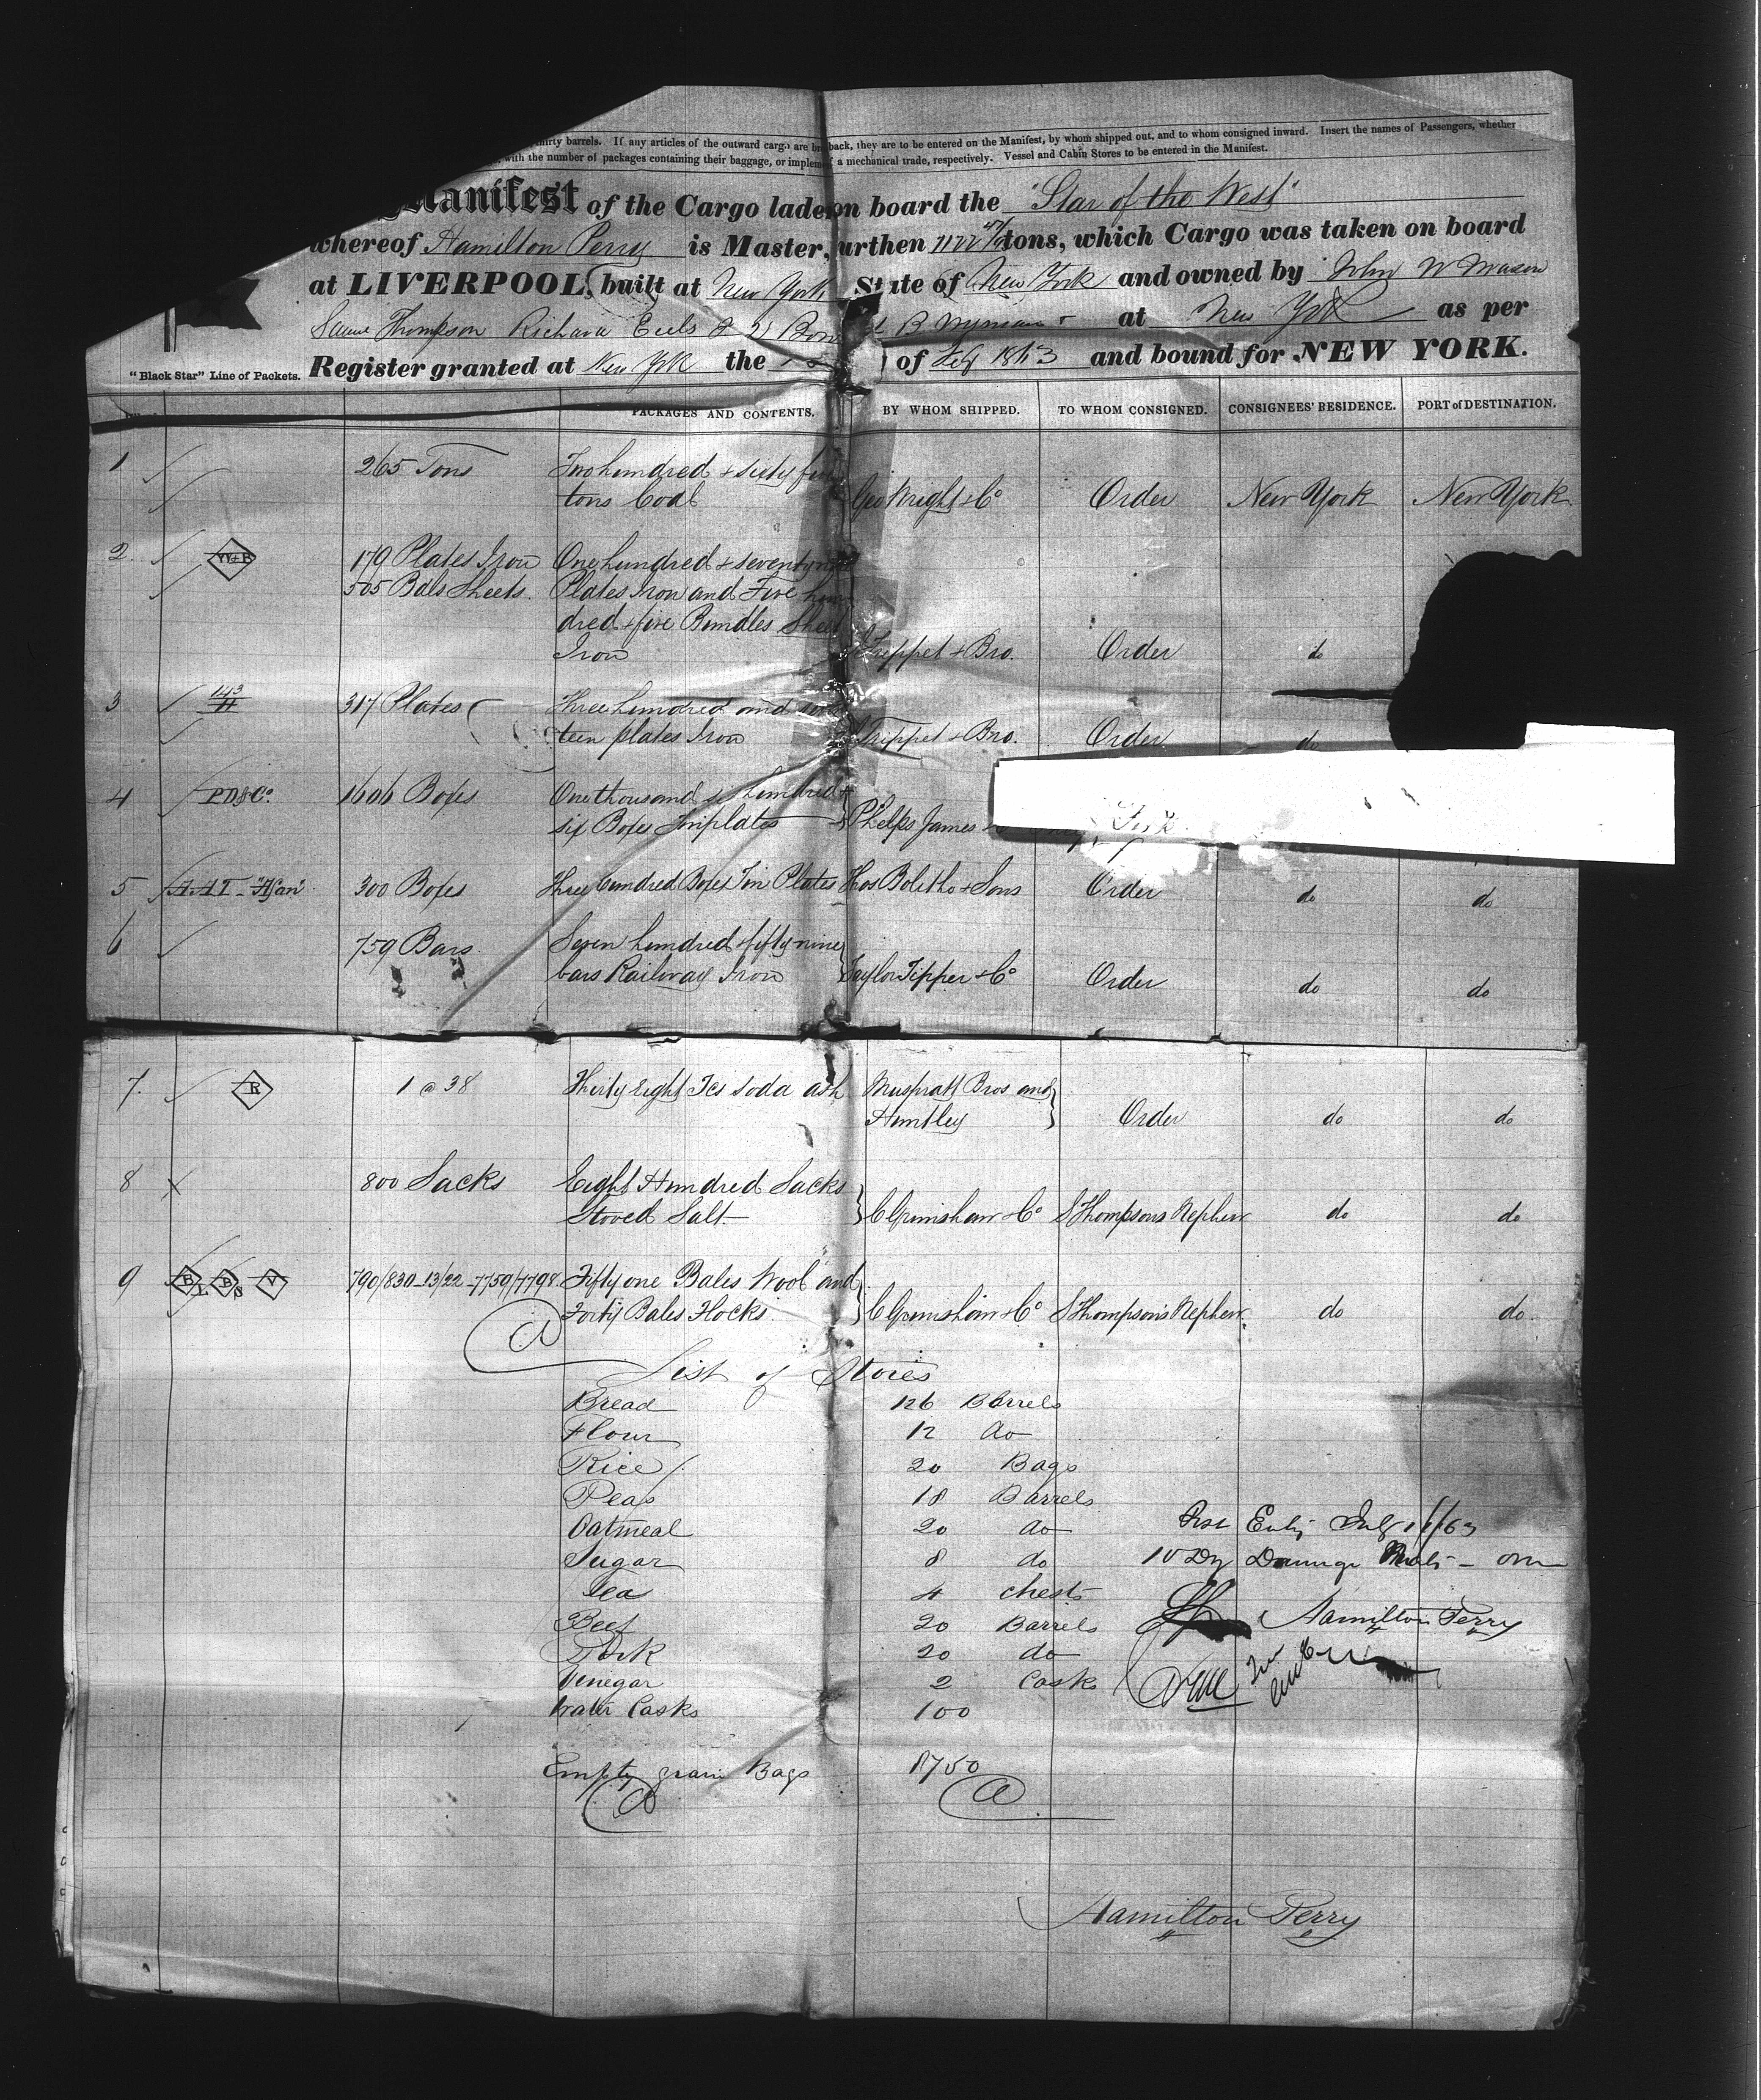 thirty barrels. If any articles of the outward cargo are brought back, they are to be entered on the Manifest, by whom shipped out, and to whom consigned inward. Insert the names of Passengers, whether
with the number of packages containing their baggage, or implements of a mechanical trade, respectively. Vessel and Cabin Stores to be entered in the Manifest.
Manifest of the Cargo laden on board the "Star of the West"
whereof Hamilton Perry is Master, urthen 1122 tons, which Cargo was taken on board
at LIVERPOOL, built at New York State of New York and owned by John W Mason
Thompson Richard at New York as per
"Black Star" Line of Packets. Register granted at New York the of 1863 and bound for NEW YORK.
PACKAGES AND CONTENTS. BY WHOM SHIPPED. TO WHOM CONSIGNED. CONSIGNEES' RESIDENCE. PORT of DESTINATION.
1 265 Tons Two hundred + sixty five
tons Coal Geo Wright + Co Order New York New York
2 179 Plates Iron One hundred + seventy nine
505 Bdls Sheets. Plates Iron and Five hun
dred + five Bundles Sheet
Iron Tippet + Bro. Order do
3 317 Plates Three hundred and seven
teen plates Iron Tippet + Bro. Order do
4 PD&Co. 1606 Boxes One thousand six hundred +
six Boxes Tinplates Phelps James
5 300 Boxes Three hundred Boxes Tin Plates Thos Bolitho + Sons Order do do
6 759 Bars Seven hundred + fifty nine
bars Railway Iron Taylor Tipper + Co Order do do
7. R 1 @ 38 Thirty Eight Tcs soda ash Muspratt Bros and
Huntley Order do do
8 800 Sacks Eight Hundred Sacks
Stoved Salt C Grimshaw + Co S Thompsons Nephew do do
9 790/830 - 13/22 - 7759/7798 Fifty one Bales Wool and
Forty Bales Flocks. C Grimshaw + Co S Thompson's Nephew. do do.
List of Stores
Bread 126 Barrels
Flour 12 do
Rice 20 Bags
Peas 18 Barrels
Oatmeal 20 do
Sugar 8 do
Tea 4 chests
Beef 20 Barrels
Pork 20 do
Vinegar 2 Casks
Water Casks 100
Hamilton Perry
Empty grain Bags 8750
Hamilton Perry